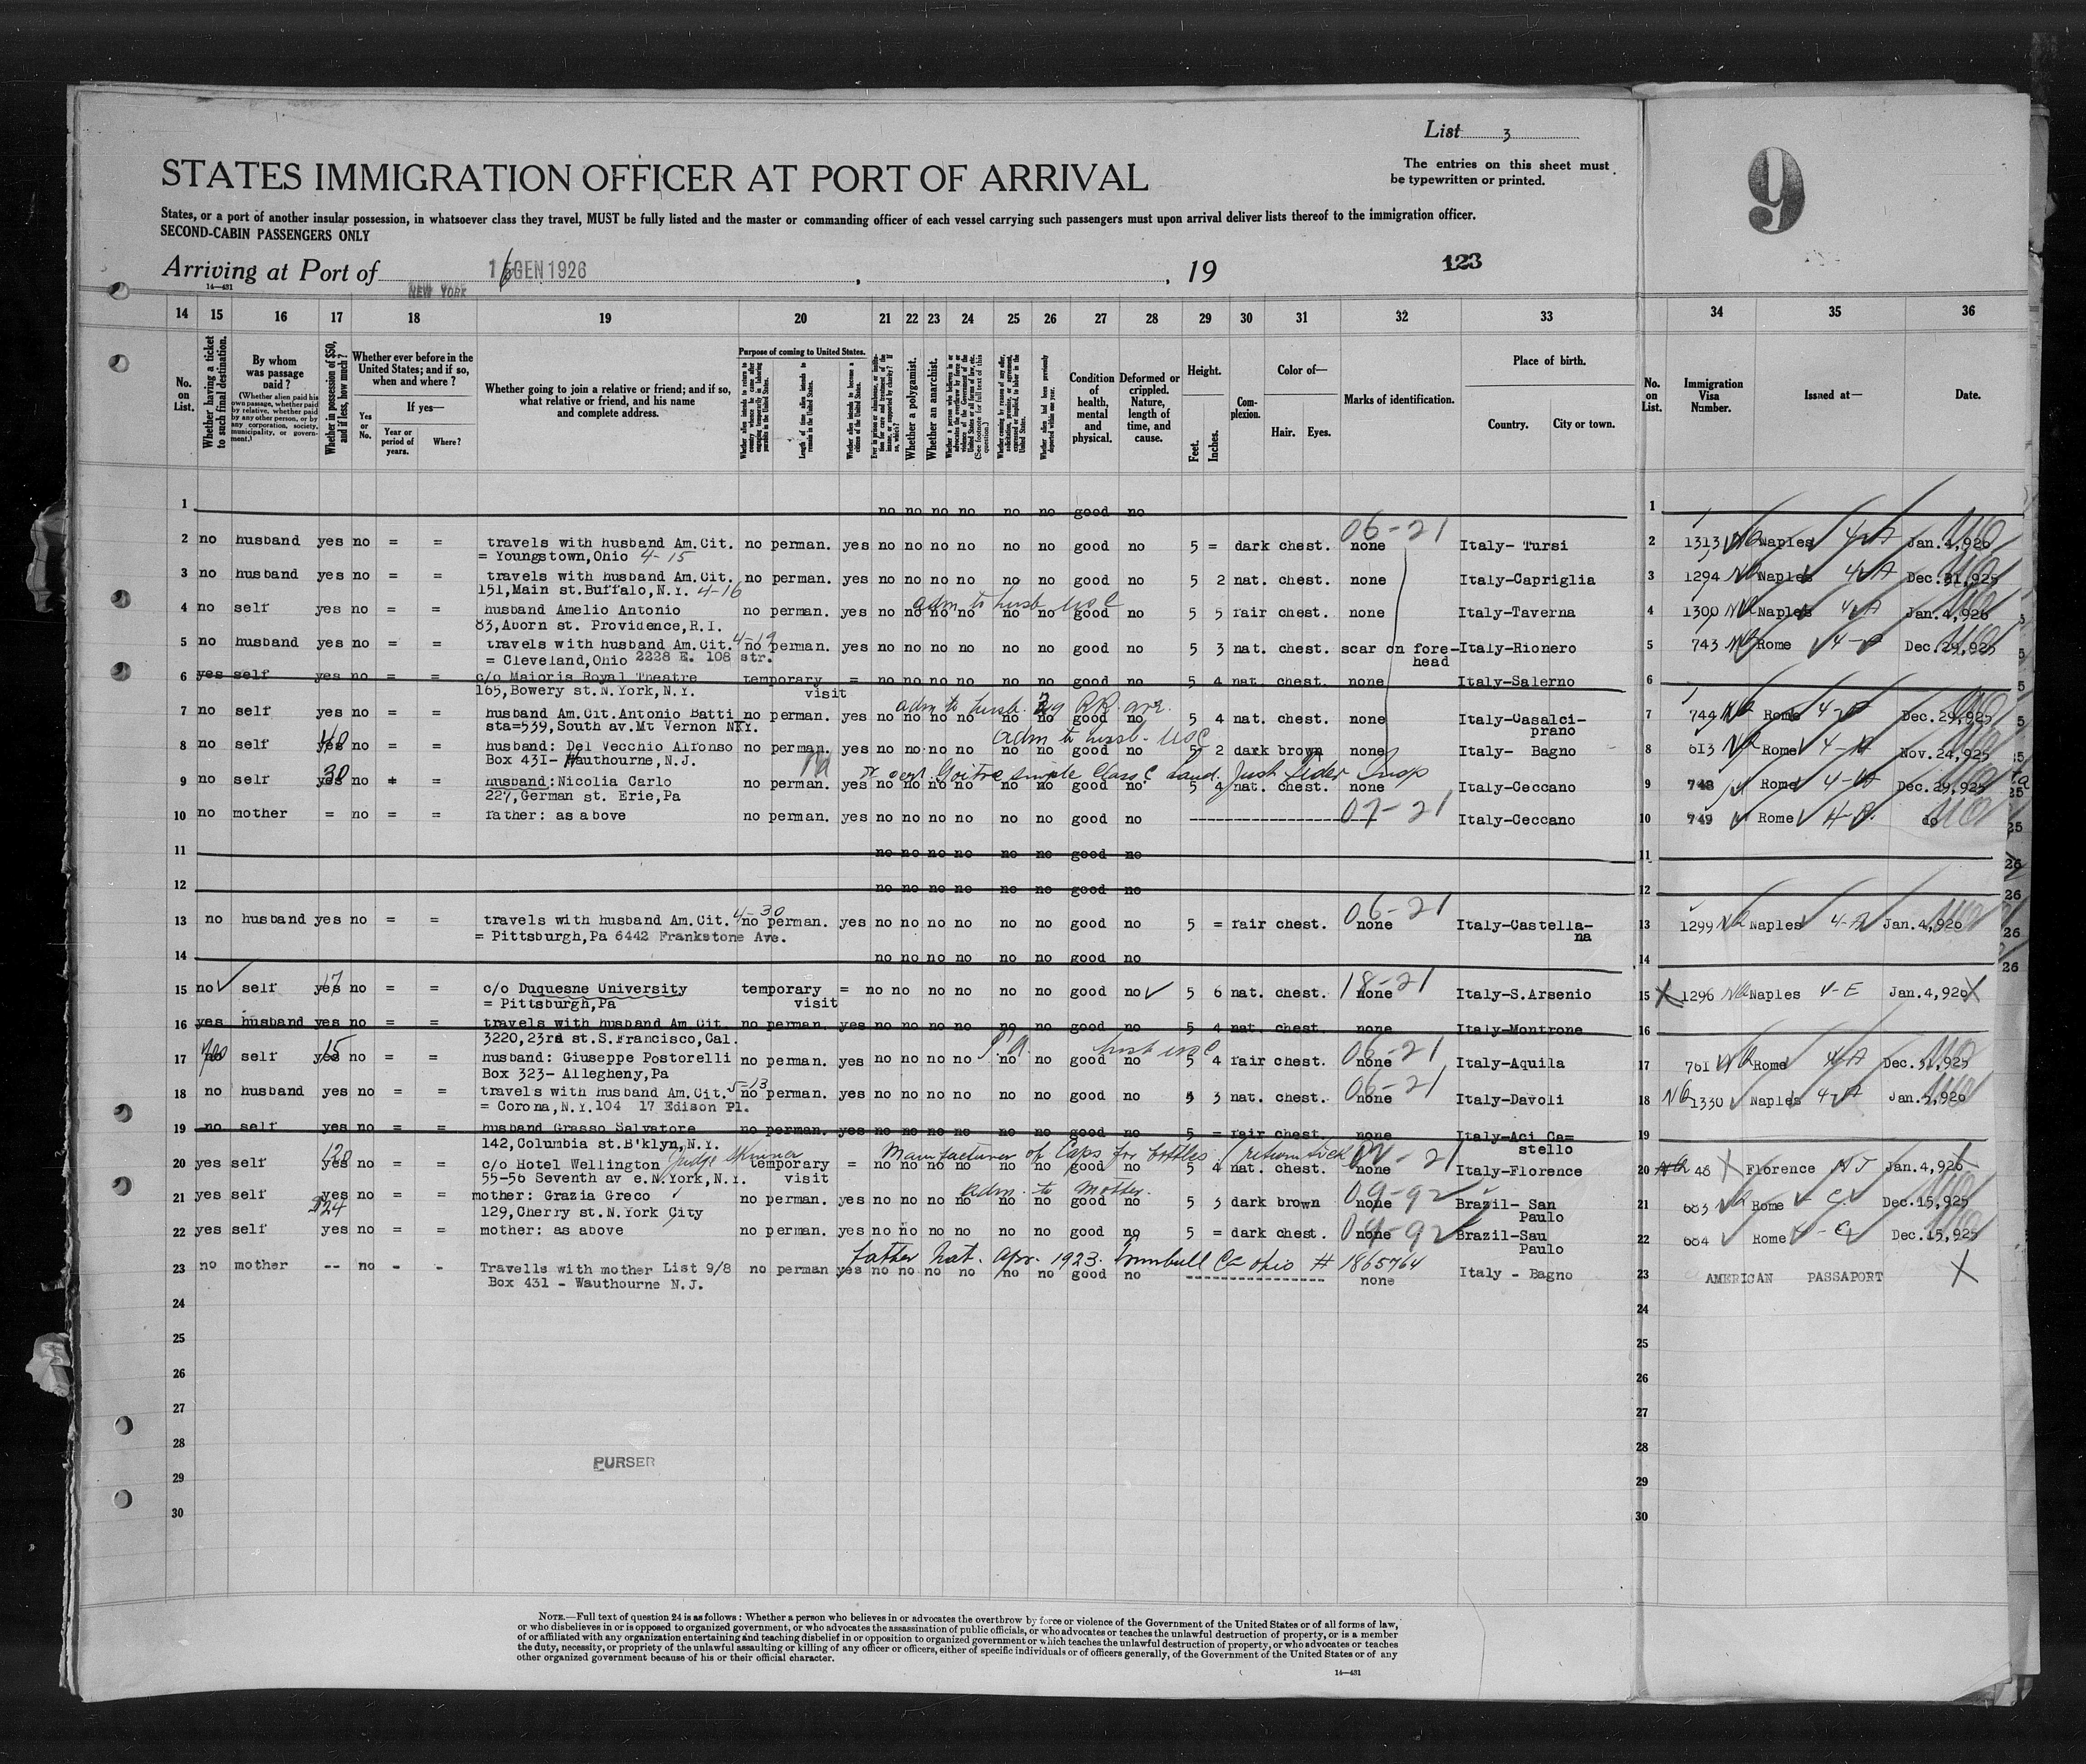 List 3
The entries on this sheet must
be typewritten or printed.
9
STATES IMMIGRATION OFFICER AT PORT OF ARRIVAL
States, or a port of another insular possession, in whatsoever class they travel, MUST be fully listed and the master or commanding officer of each vessel carrying such passengers must upon arrival deliver lists thereof to the immigration officer.
SECOND-CABIN PASSENGERS ONLY
Arriving at Port of 16 GEN 1926, 19 123
14—431
NEW YORK
14 15 16 17 18 19 20 21 22 23 24 25 26 27 28 29 30 31 32 33 34 35 36
No. on List.
Whether having a ticket to such final destination.
By whom was passage paid?
(Whether alien paid his own passage, whether paid by relative, whether paid by any other person, or by any corporation, society, municipality, or government.)
Whether in possession of $50, and if less, how much?
Whether ever before in the United States; and if so, when and where?
Yes or No.
If yes—
Year or period of years.
Where?
Whether going to join a relative or friend; and if so, what relative or friend, and his name and complete address.
Purpose of coming to United States.
Length of time alien intends to remain in the United States.
Whether alien intends to become a citizen of the United States.
Whether a polygamist.
Whether an anarchist.
Condition of health, mental and physical.
Deformed or crippled. Nature, length of time, and cause.
Height.
Feet. Inches.
Complexion.
Color of—
Hair. Eyes.
Marks of identification.
Place of birth.
Country. City or town.
No. on List.
Immigration Visa Number.
Issued at—
Date.
1 no no no no no no good no 1
06-21
2 no husband yes no = = travels with husband Am.Cit. no perman. yes no no no no no no good no 5 = dark chest. none Italy- Tursi 2 1313 Naples 4-A Jan.4,926
= Youngstown,Ohio 4-15
3 no husband yes no = = travels with husband Am.Cit. no perman. yes no no no no no no good no 5 2 nat. chest. none Italy-Capriglia 3 1294 Naples 4-A Dec.31,925
151,Main st.Buffalo,N.Y. 4-16
adm to husb USC
4 no self yes no = = husband Amelio Antonio no perman. yes no no no no no no good no 5 5 fair chest. none Italy-Taverna 4 1300 Naples 4-A Jan.4,926
83,Aborn st. Providence,R.I.
5 no husband yes no = = travels with husband Am.Cit. 4-19 no perman. yes no no no no no no good no 5 3 nat. chest. scar on fore- Italy-Rionero 5 743 Rome Dec.29,925
= Cleveland,Ohio 2228 E. 108 str. head
6 yes self yes no = = c/o Maioris Royal Theatre temporary = no no no no no no good no 5 4 nat. chest. none Italy-Salerno 6
165,Bowery st.N.York,N.Y. visit
adm to husb.
7 no self yes no = = husband Am.Cit.Antonio Batti no perman. yes no no no no no no good no 5 4 nat. chest. none Italy-Casalci- 7 744 Rome Dec.29,925
sta=539,South av.Mt Vernon NKY. prano
40 adm to husb. USC
8 no self yes no = = husband: Del Vecchio Alfonso no perman. yes no no no no no no good no 5 2 dark brown none Italy- Bagno 8 613 Rome 4-A Nov.24,925
Box 431- Hauthourne,N.J.
30 Goitre simple Class C
9 no self yes no = = husband:Nicolia Carlo no perman. yes no no no no no no good no 5 4 nat. chest. none Italy-Ceccano 9 748 Rome Dec.29,925
227,German st. Erie,Pa
07-21
10 no mother = no = = father: as above no perman. yes no no no no no no good no Italy-Ceccano 10 749 Rome do
11 no no no no no no good no 11
12 no no no no no no good no 12
06-21
13 no husband yes no = = travels with husband Am.Cit. 4-30 no perman. yes no no no no no no good no 5 = fair chest. none Italy-Castella- 13 1299 Naples 4-A Jan.4,926
= Pittsburgh,Pa 6442 Frankstone Ave. na
14 no no no no no no good no 14
17 18-21
15 no self yes no = = c/o Duquesne University temporary = no no no no no no good no 5 6 nat. chest. none Italy-S.Arsenio 15 X 1296 Naples 4-E Jan.4,926 X
= Pittsburgh,Pa visit
16 yes husband yes no = = travels with husband Am.Cit. no perman. yes no no no no no no good no 5 4 nat. chest. none Italy-Montrone 16
3220,23rd st.S.Francisco,Cal.
15 husb USC 06-21
17 no self yes no = = husband: Giuseppe Postorelli no perman. yes no no no no no no good no 5 4 fair chest. none Italy-Aquila 17 761 Rome 4-A Dec.31,925
Box 323- Allegheny,Pa
06-21
18 no husband yes no = = travels with husband Am.Cit. 5-13 no perman. yes no no no no no no good no 5 3 nat. chest. none Italy-Davoli 18 1330 Naples 4-A Jan.5,926
= Corona,N.Y.104 17 Edison Pl.
19 no self yes no = = husband Grasso Salvatore no perman. yes no no no no no no good no 5 = fair chest. none Italy-Aci Ca= 19
142,Columbia st.B'klyn,N.Y. stello
120 Judge Manufacturer of Caps for bottles
20 yes self yes no = = c/o Hotel Wellington temporary = no no no no no no good no 5 4 nat. chest. none Italy-Florence 20 48 X Florence Jan.4,926
55-56 Seventh av e.N.York,N.Y. visit
adm. to Mother. 09-92
21 yes self yes no = = mother: Grazia Greco no perman. yes no no no no no no good no 5 3 dark brown none Brazil- San 21 683 Rome Dec.15,925
$24 129,Cherry st.N.York City Paulo
04-92
22 yes self yes no = = mother: as above no perman. yes no no no no no no good no 5 = dark chest. none Brazil-Sau 22 684 Rome Dec.15,925
Paulo
father Nat. Apr. 1923. Trumbull Co Ohio # 1865764
23 no mother -- no - - Travells with mother List 9/8 no perman yes no no no no no no good no none Italy - Bagno 23 AMERICAN PASSAPORT X
Box 431 - Wauthourne N.J.
24 24
25 25
26 26
27 27
28 28
PURSER
29 29
30 30
NOTE.—Full text of question 24 is as follows: Whether a person who believes in or advocates the overthrow by force or violence of the Government of the United States or of all forms of law,
or who disbelieves in or is opposed to organized government, or who advocates the assassination of public officials, or who advocates or teaches the unlawful destruction of property, or is a member
of or affiliated with any organization entertaining and teaching disbelief in or opposition to organized government or which teaches the unlawful destruction of property, or who advocates or teaches
the duty, necessity, or propriety of the unlawful assaulting or killing of any officer or officers, either of specific individuals or of officers generally, of the Government of the United States or of any
other organized government because of his or their official character.
14—431